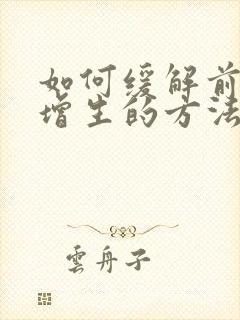 如何缓解前
增生的方法
雲舟子